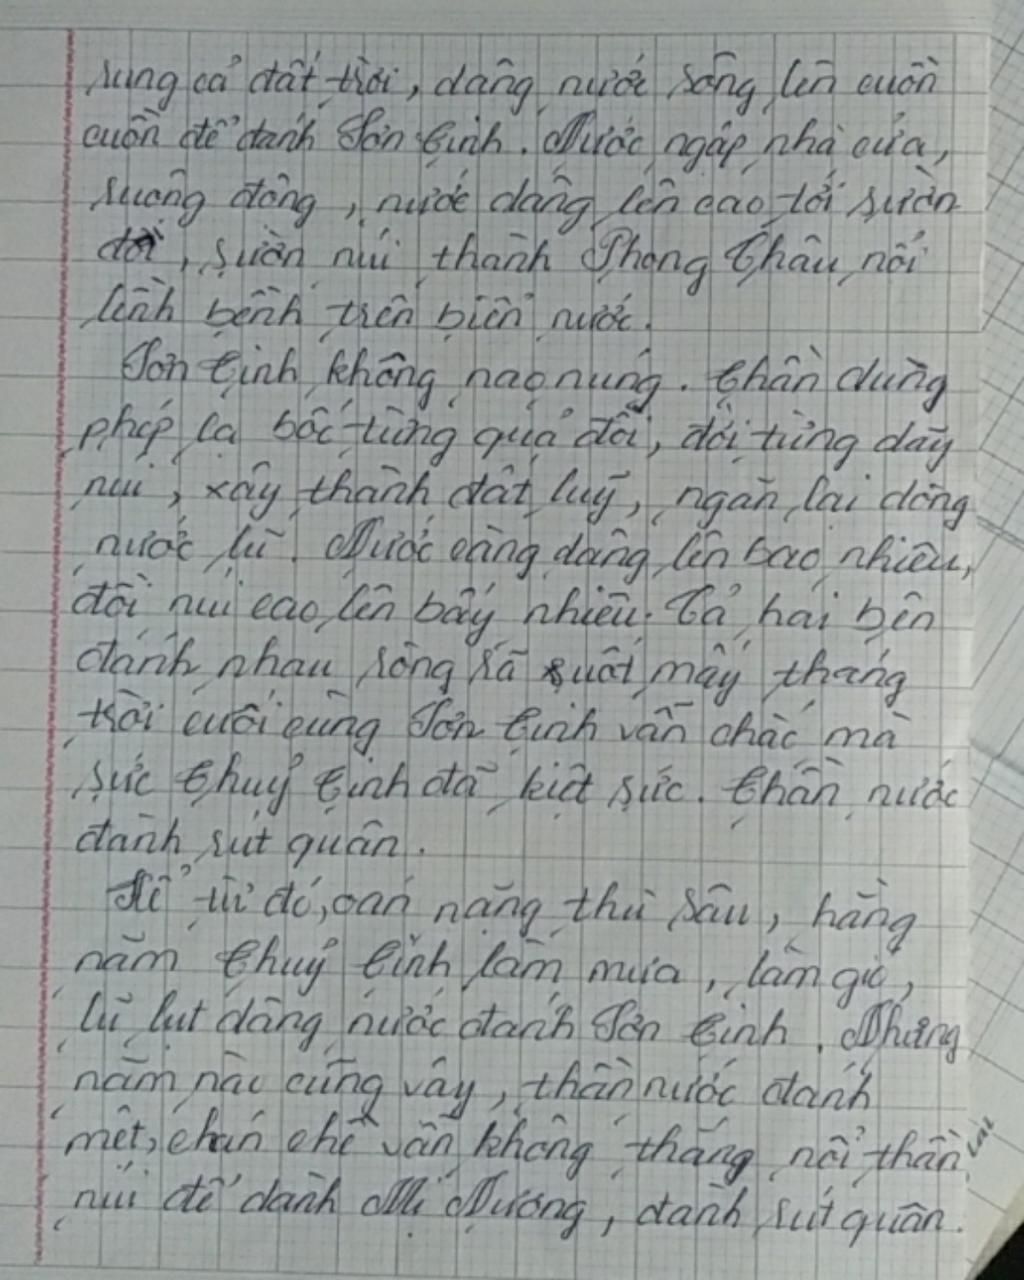 rung cả đất trời, dâng nước sông lên cuồn
cuộn để đánh Sơn Tinh. Nước ngập nhà cửa,
ruộng đồng, nước dâng lên cao tới sườn
đồi, sườn núi thành Phong Châu nổi
lềnh bềnh trên biển nước.
Sơn Tinh không nao núng. Thần dùng
phép lạ bốc từng quả đồi, dời từng dãy
núi, xây thành đất luỹ, ngăn lại dòng
nước lũ. Nước càng dâng lên bao nhiêu,
đồi núi cao lên bấy nhiêu. Cả hai bên
đánh nhau ròng rã suốt mấy tháng
trời cuối cùng Sơn Tinh vẫn chắc mà
sức Thuỷ Tinh đã kiệt sức. Thần nước
đành rút quân.
Kể từ đó, oán nặng thù sâu, hằng
năm Thuỷ Tinh làm mưa, làm gió,
lũ lụt dâng nước đánh Sơn Tinh. Nhưng
năm nào cũng vậy, thần nước đánh
mệt, chán chê vẫn không thắng nổi thần
núi để dành Mị Nương, đành rút quân.